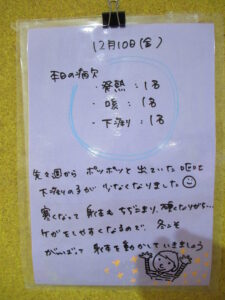 12月10日(金)
本日の病欠
・発熱：1名
・咳：1名
・下痢り：1名
先々週からポツポツと出ていた嘔吐
下痢りの子が少なくなりました
寒くなって身体もちぢこまり、硬くなりがち…
ケガをしやすくなるので、冬こそ
がんばって身体を動かしていきましょう